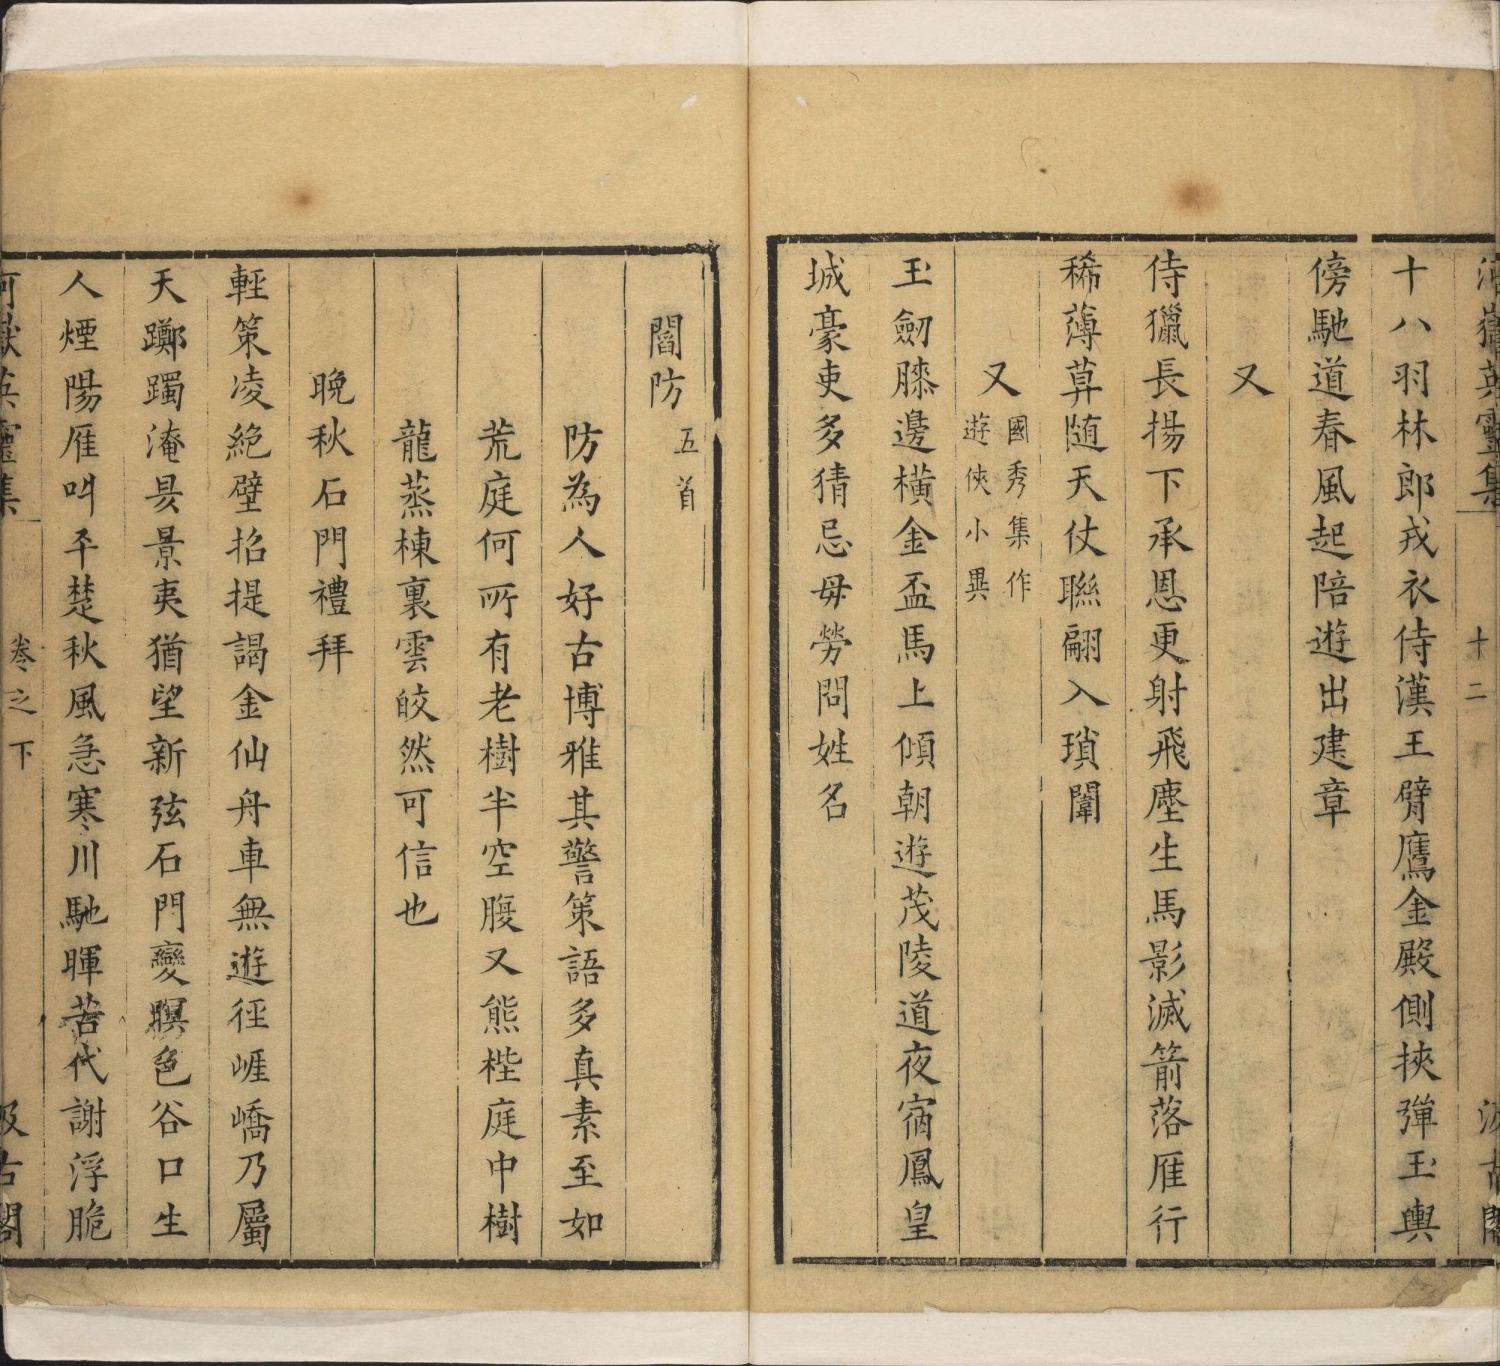 河嶽英靈集
十二
汲古閣
十八羽林郎戎衣侍漢王臂鷹金殿側挾彈玉輿
傍馳道春風起陪遊出建章
又
侍獵長揚下承恩更射飛塵生馬影滅箭落雁行
稀薄草随天仗聯翩入瑣闈
又
國秀集作
遊俠小異
玉劒膝邊橫金盃馬上傾朝遊茂陵道夜宿鳳皇
城豪吏多猜忌毋勞問姓名
閻防
五首
防為人好古博雅其警策語多真素至如
荒庭何所有老樹半空腹又熊㭫庭中樹
龍蒸棟裏雲皎然可信也
晚秋石門禮拜
輕策凌絶壁招提謁金仙舟車無遊徑崕嶠乃屬
天躑躅淹昃景夷猶望新弦石門變暝色谷口生
人煙陽雁叫平楚秋風急寒川馳暉苦代謝浮脆
河嶽英靈集
卷之下
汲古閣